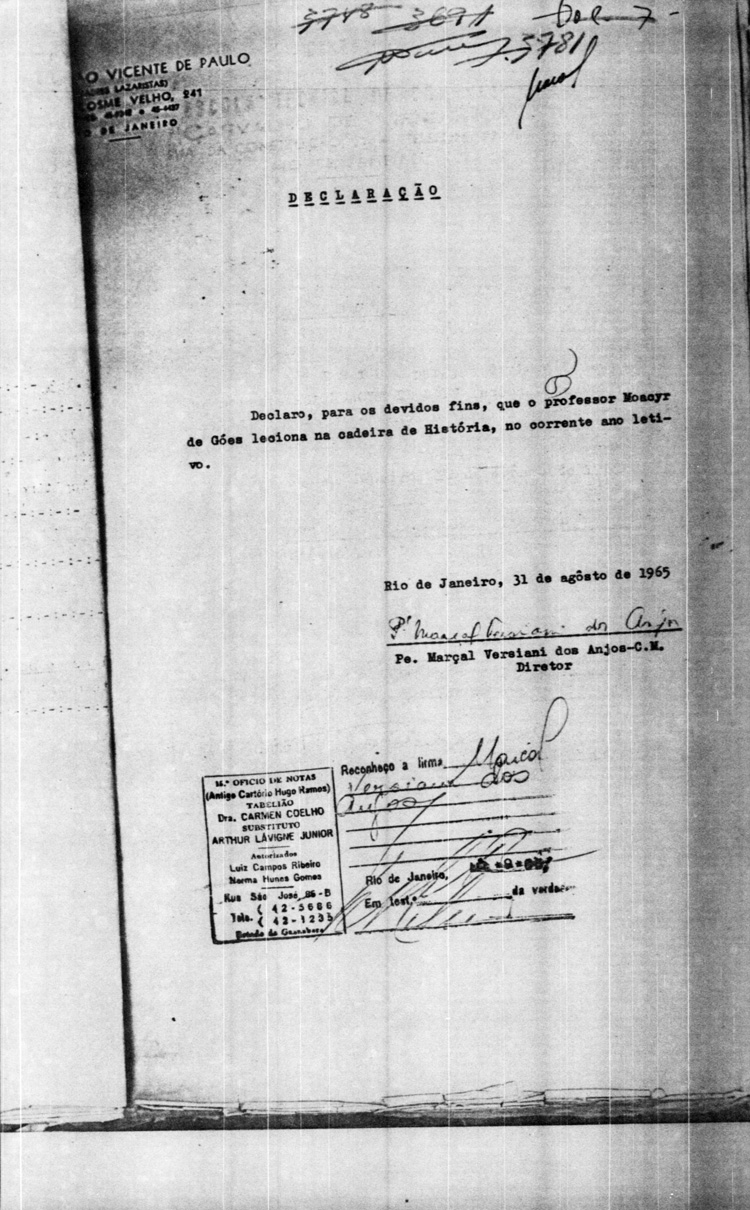 3748 3691 Doc 7-
3781
O VICENTE DE PAULO
LAZARISTAS)
COSME VELHO, 241
DE JANEIRO
DECLARAÇÃO
Declaro, para os devidos fins, que o professor Moacyr
de Góes leciona na cadeira de História, no corrente ano leti-
vo.
Rio de Janeiro, 31 de agôsto de 1965
Pe. Marçal Versiani dos Anjos
Pe. Marçal Versiani dos Anjos-C.M.
Diretor
OFICIO DE NOTAS
(Antigo Cartório Hugo Ramos)
TABELIÃO
Dra. CARMEN COELHO
SUBSTITUTO
ARTHUR LAVIGNE JUNIOR
Autorizados
Luiz Campos Ribeiro
Norma Hunes Gomes
Rua São José, 86-B
Tels. ( 42-5666
( 42-1235
Estado da Guanabara
Reconheço a firma Marçal
Versiani dos
Anjos
Rio de Janeiro,
Em test. da verdade